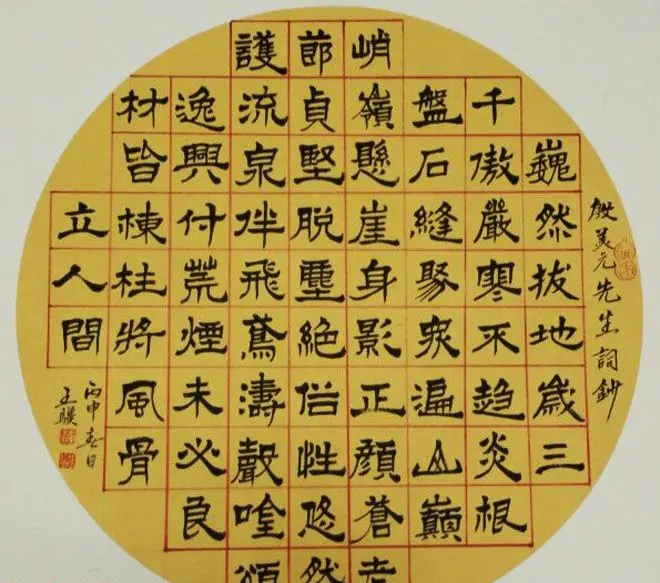 殷美元先生詞鈔
巍然拔地歲三
千傲嚴寒不趋炎根
盤石縫聚衆遍山巔
峭嶺懸崖身影正顏蒼老
節貞堅脫塵絕俗性悠然
護流泉伴飛鳶濤聲唫頌
逸興付荒煙未必良
材皆棟柱將風骨
立人間
丙申春日
王